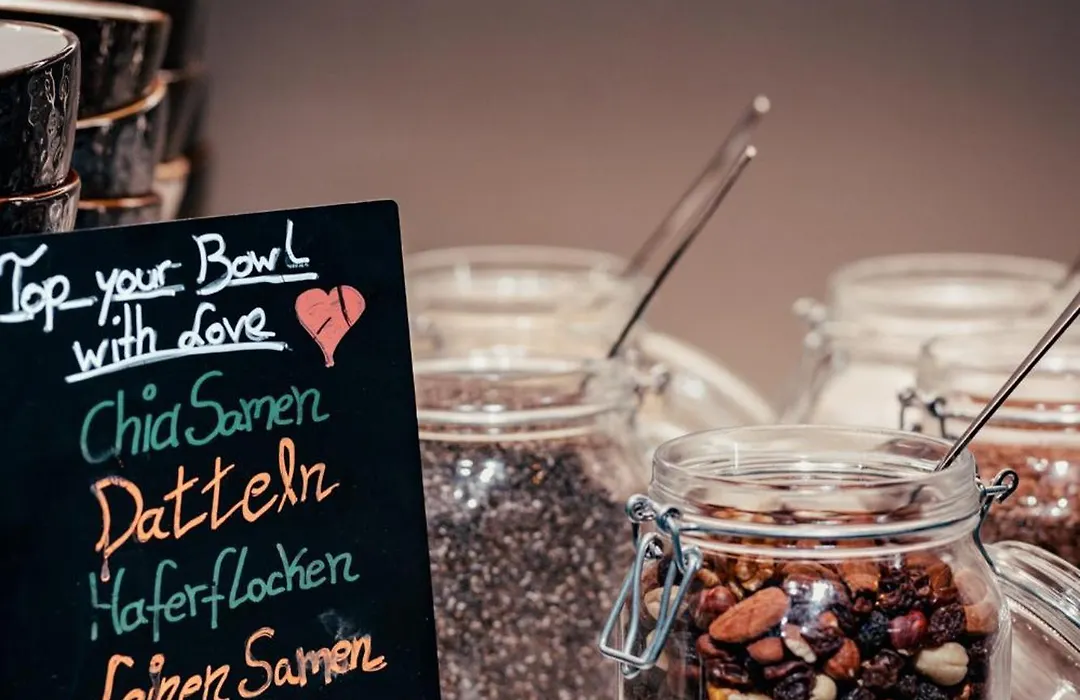 Top your Bowl
with Love
Chia Samen
Datteln
Haferflocken
Leinen Samen